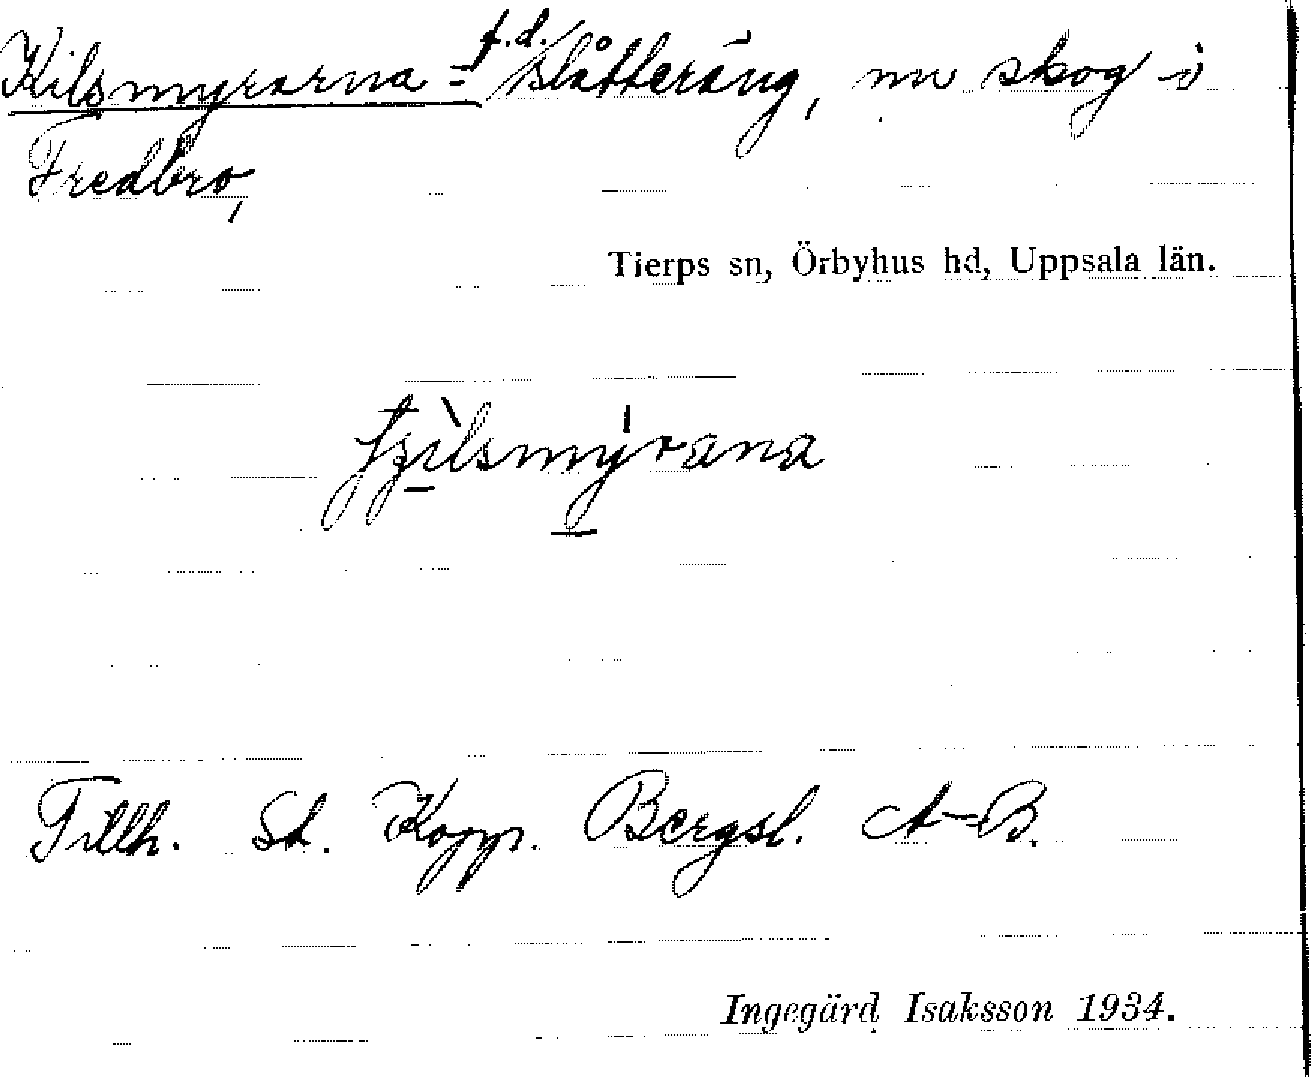 Kilsmyrarna = f.d. slåtteräng, nu skog i
Fredbro,
Tierps sn, Örbyhus hd, Uppsala län.
Tillh. St. Kopp. Bergsl. A-B.
Ingegärd Isaksson 1934.